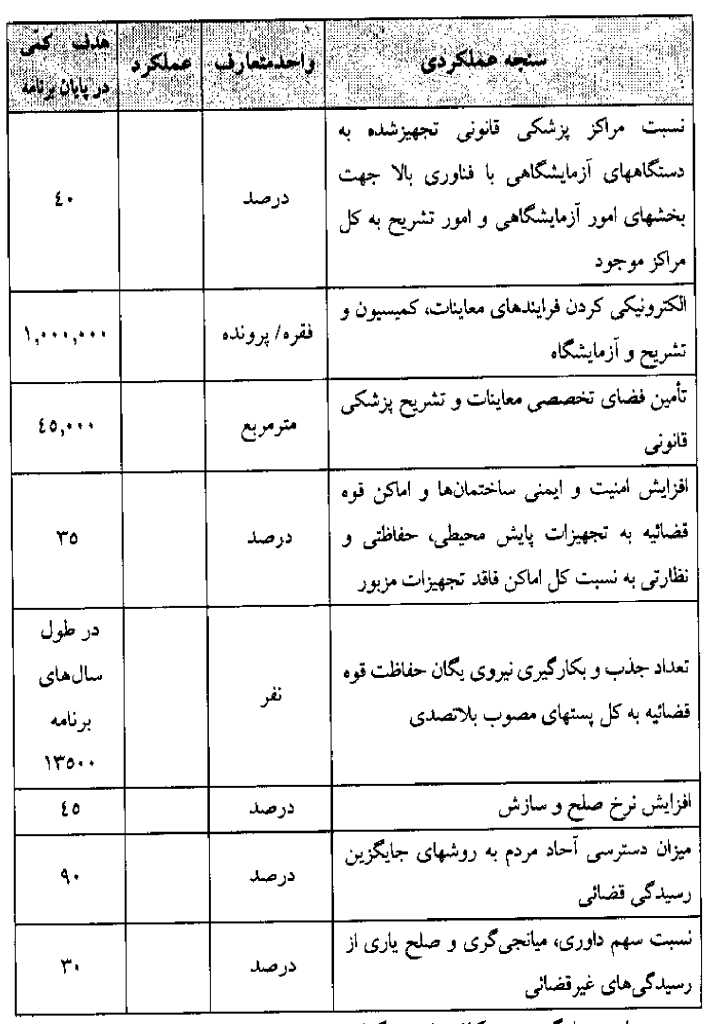 سنجه عملکردی | واحدمتعارف | عملکرد | هدف کمّی
در پایان برنامه
نسبت مراکز پزشکی قانونی تجهیزشده به
دستگاههای آزمایشگاهی با فناوری بالا جهت
بخشهای امور آزمایشگاهی و امور تشریح به کل
مراکز موجود
درصد
٤٠
الکترونیکی کردن فرایندهای معاینات، کمیسیون و
تشریح و آزمایشگاه
فقره/ پرونده
١,٠٠٠,٠٠٠
تأمین فضای تخصصی معاینات و تشریح پزشکی
قانونی
مترمربع
٤٥,٠٠٠
افزایش امنیت و ایمنی ساختمان‌ها و اماکن قوه
قضائیه به تجهیزات پایش محیطی، حفاظتی و
نظارتی به نسبت کل اماکن فاقد تجهیزات مزبور
درصد
٣٥
تعداد جذب و بکارگیری نیروی یگان حفاظت قوه
قضائیه به کل پستهای مصوب بلاتصدی
نفر
در طول
سال‌های
برنامه
١٣٥٠٠
افزایش نرخ صلح و سازش
درصد
٤٥
میزان دسترسی آحاد مردم به روشهای جایگزین
رسیدگی قضائی
درصد
٩٠
نسبت سهم داوری، میانجی‌گری و صلح یاری از
رسیدگی‌های غیرقضائی
درصد
٣٠